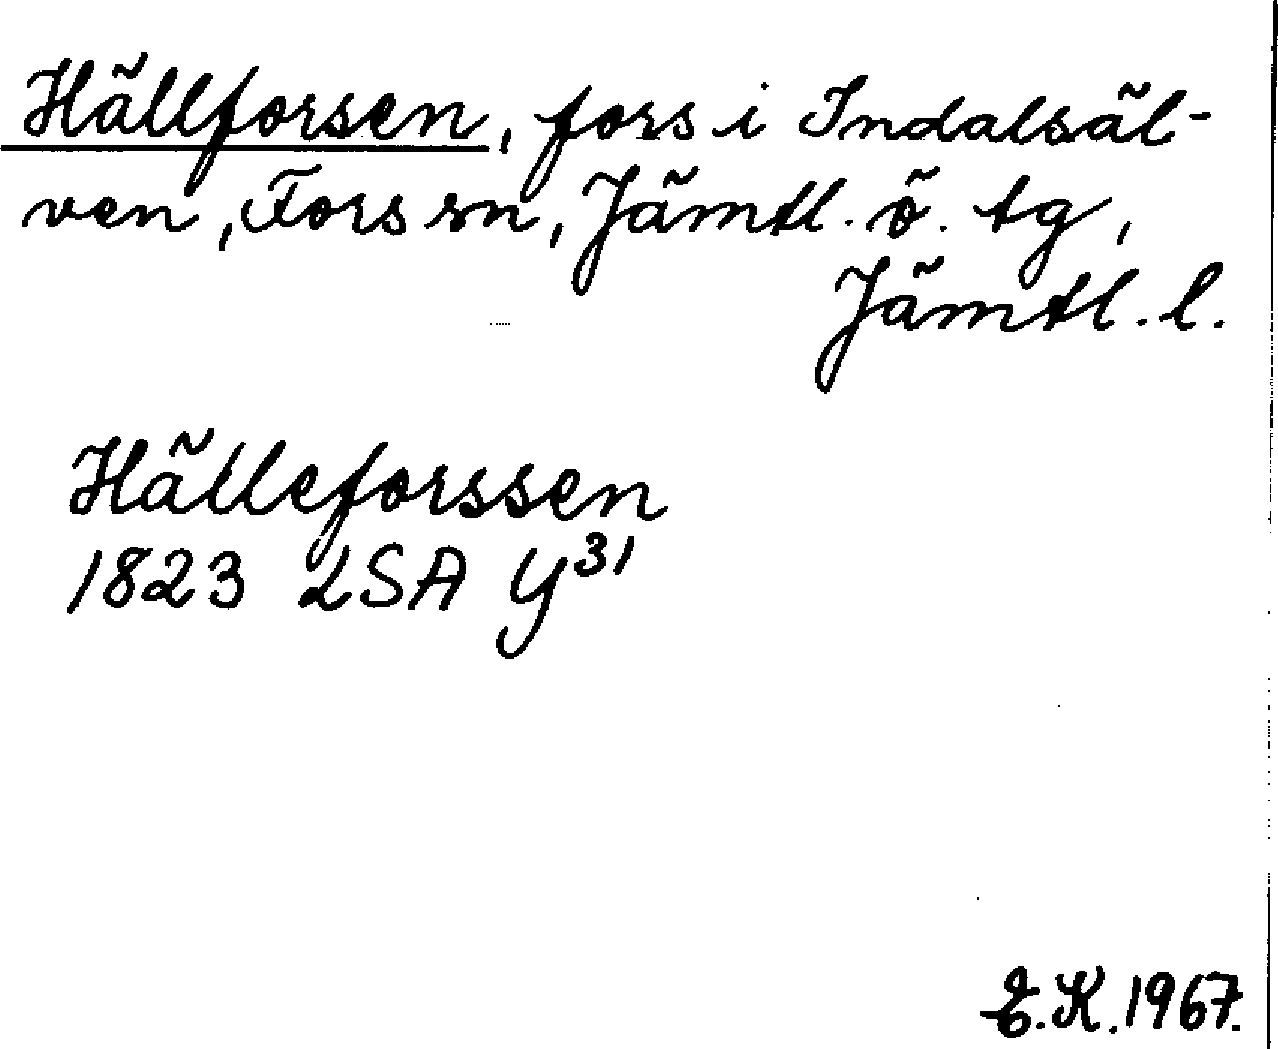 Hällforsen, fors i Indalsäl-
ven, Fors sn, Jämtl. ö. tg,
Jämtl. l.
Hälleforssen
1823 LSA Y31
E.K. 1967.